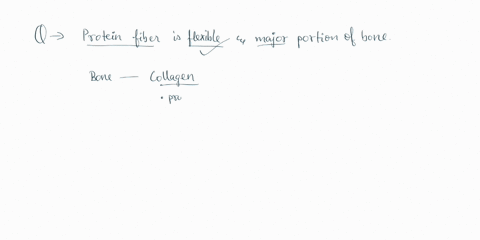 Q → Protein fiber is flexible & major portion of bone.
Bone — Collagen
• pro